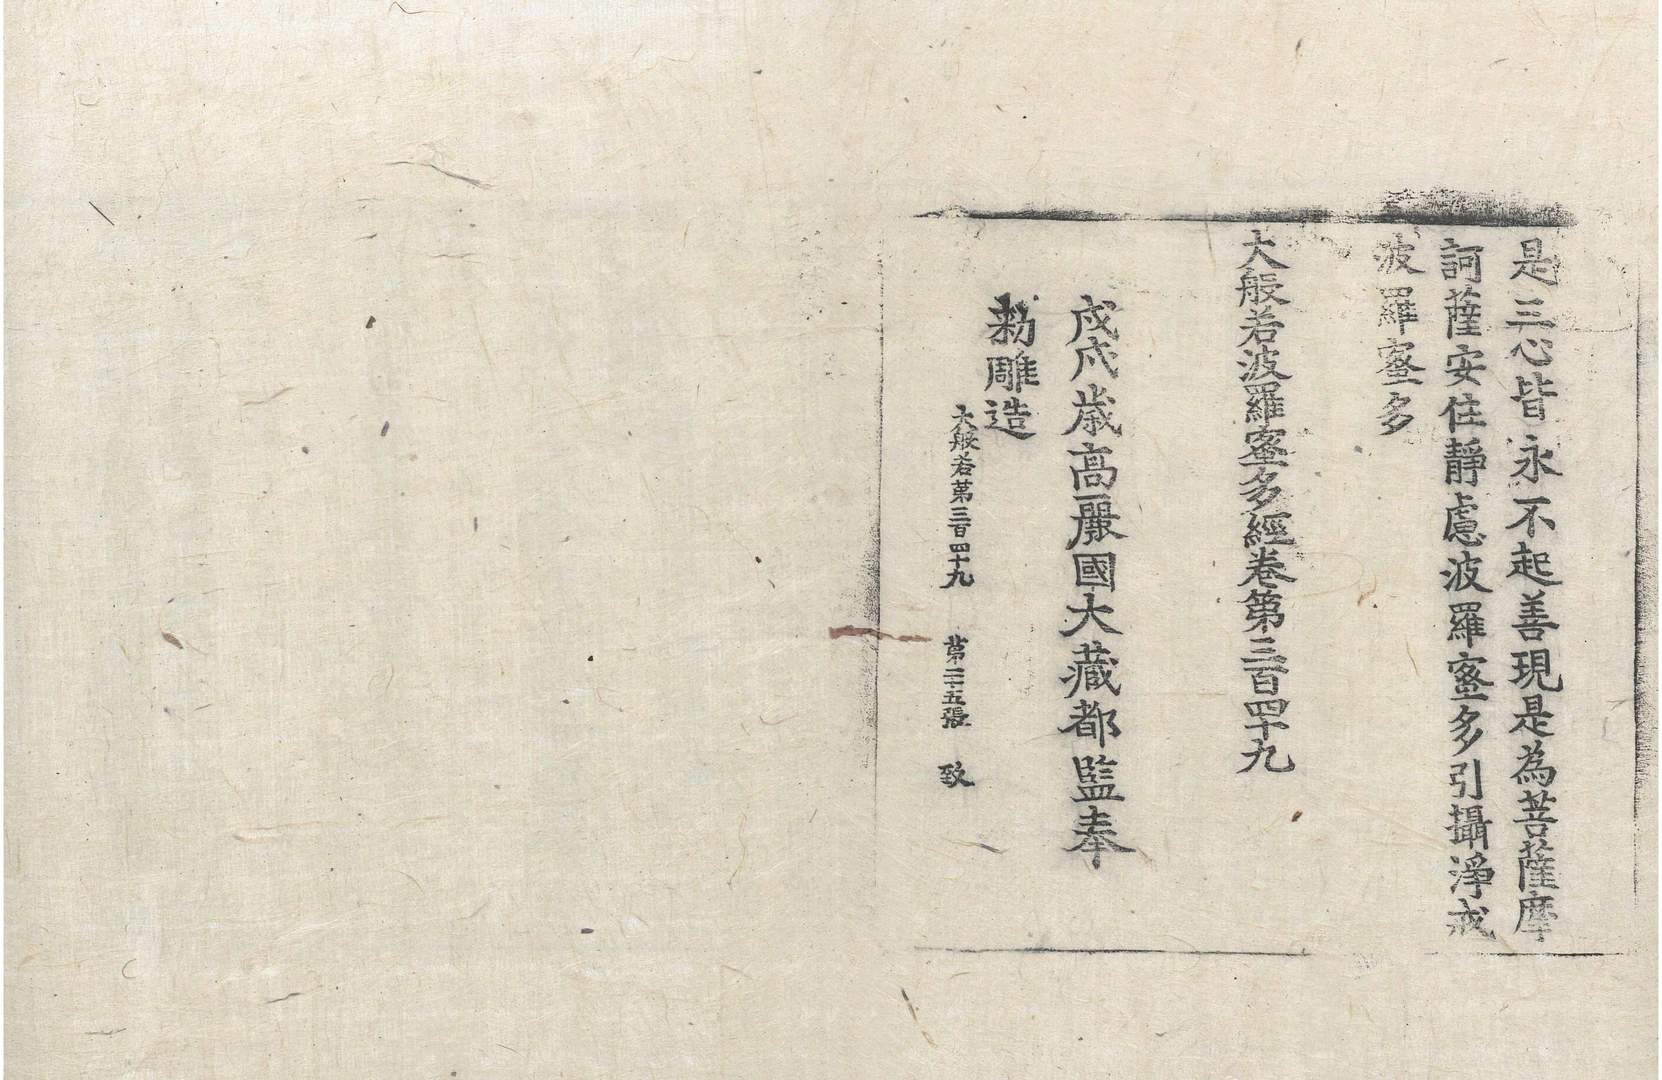 是三心皆永不起善現是為菩薩摩
訶薩安住靜慮波羅蜜多引攝淨戒
波羅蜜多
大般若波羅蜜多經卷第三百四十九
戊戌歲高麗國大藏都監奉
勑雕造
大般若第三百四十九 第二十五張 致